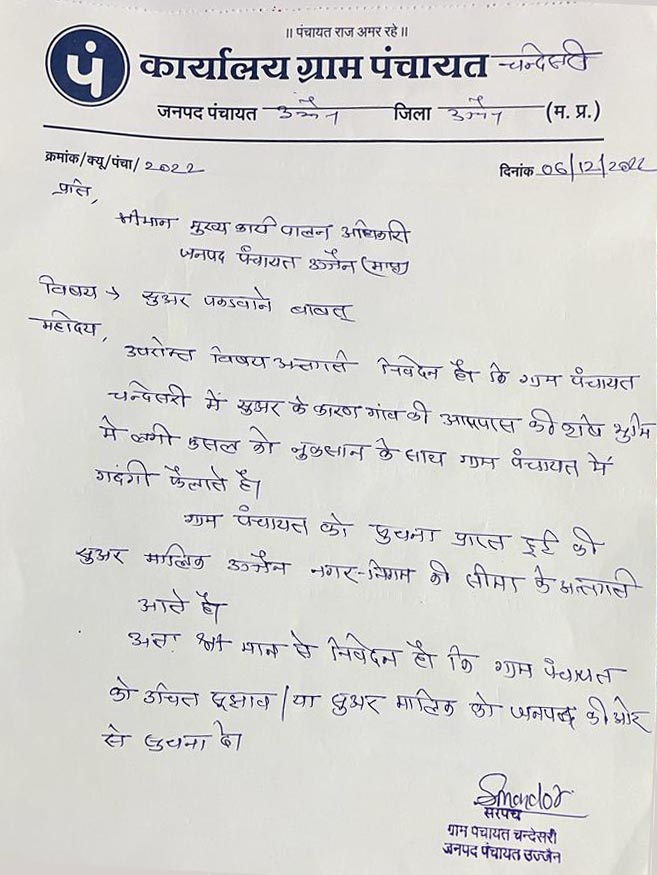 ॥ पंचायत राज अमर रहे ॥
पं
कार्यालय ग्राम पंचायत चन्देसरी
जनपद पंचायत उज्जैन जिला उज्जैन (म. प्र.)
क्रमांक/क्यू/पंचा/2022 दिनांक 06/12/2022
प्रति,
श्रीमान मुख्य कार्य पालन अधिकारी
जनपद पंचायत उज्जैन (म०प्र०)
विषय → सुअर पकडवाने बाबत्
महोदय,
उपरोक्त विषय अन्तर्गत निवेदन है। कि ग्राम पंचायत
चन्देसरी में सुअर के कारण गांव की आसपास की भूमि
मे लगी फसल को नुकसान के साथ ग्राम पंचायत में
गदंगी फैलाते है।
ग्राम पंचायत को सुचना प्राप्त हुई की
सुअर मालिक उज्जैन नगर-निगम की सीमा के अन्तर्गत
आते है।
अतः श्री मान से निवेदन है। कि ग्राम पंचायत
को उचित सुझाव / या सुअर मालिक को जनपद की ओर
से सुचना दे।
सरपंच
ग्राम पंचायत चन्देसरी
जनपद पंचायत उज्जैन